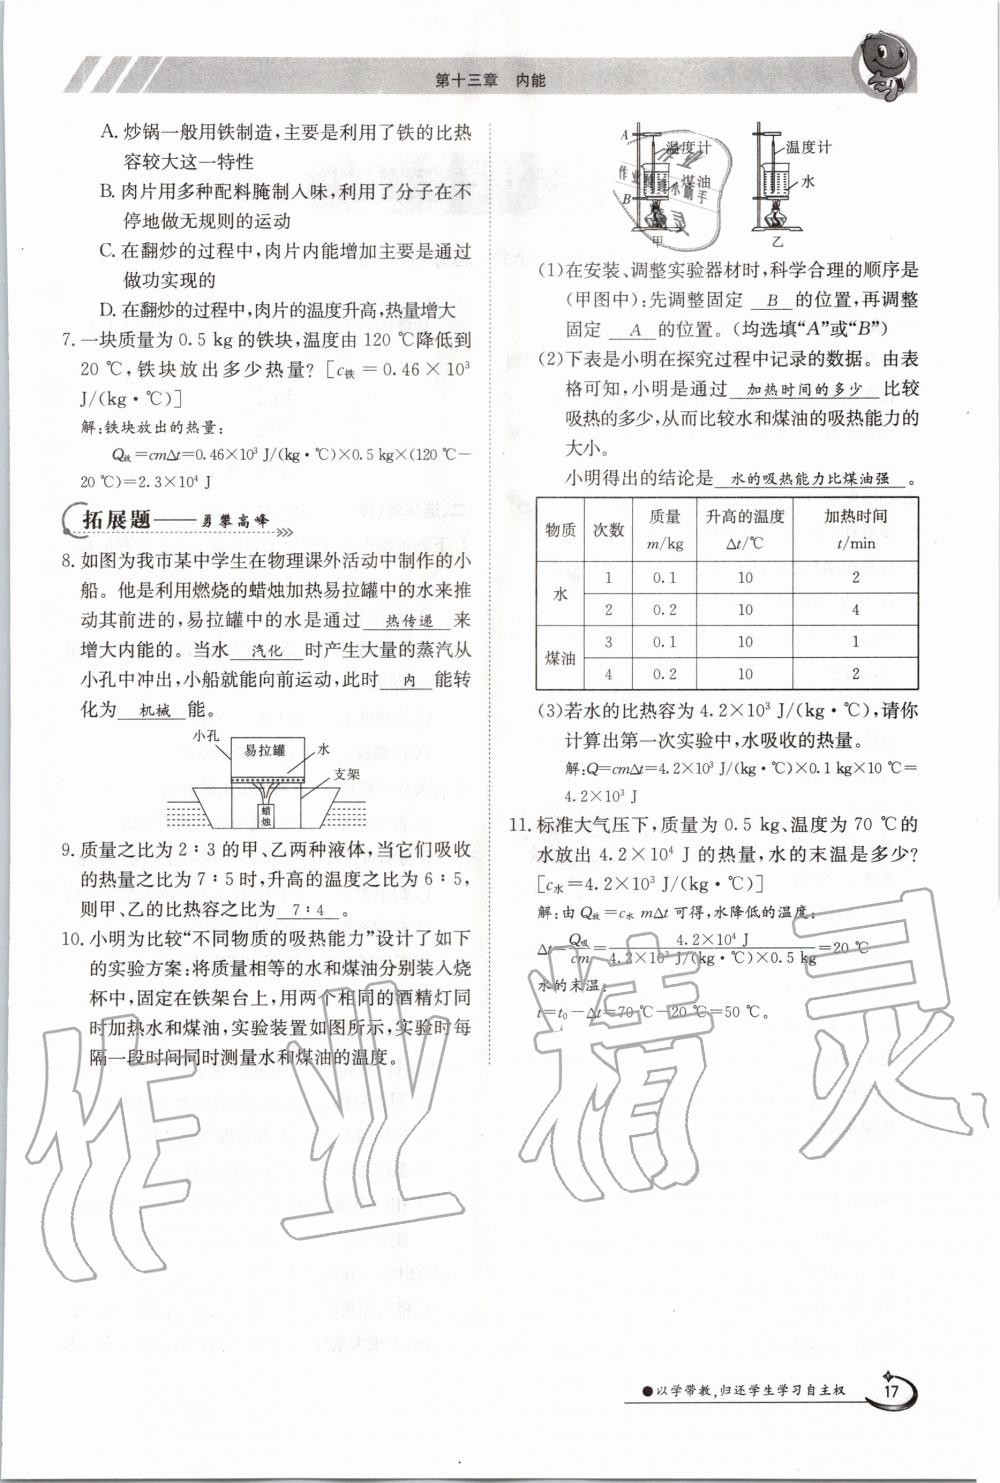 第十三章　内能
A. 炒锅一般用铁制造，主要是利用了铁的比热
容较大这一特性
B. 肉片用多种配料腌制入味，利用了分子在不
停地做无规则的运动
C. 在翻炒的过程中，肉片内能增加主要是通过
做功实现的
D. 在翻炒的过程中，肉片的温度升高，热量增大
7. 一块质量为 0.5 kg 的铁块，温度由 120 ℃降低到
20 ℃，铁块放出多少热量？[c铁 = 0.46×10³
J/(kg·℃)]
解：铁块放出的热量：
Q放=cmΔt=0.46×10³ J/(kg·℃)×0.5 kg×(120 ℃-
20 ℃)=2.3×10⁴ J
拓展题——勇攀高峰
8. 如图为我市某中学生在物理课外活动中制作的小
船。他是利用燃烧的蜡烛加热易拉罐中的水来推
动其前进的，易拉罐中的水是通过 热传递 来
增大内能的。当水 汽化 时产生大量的蒸汽从
小孔中冲出，小船就能向前运动，此时 内 能转
化为 机械 能。
小孔
易拉罐
水
支架
蜡烛
9. 质量之比为 2∶3 的甲、乙两种液体，当它们吸收
的热量之比为 7∶5 时，升高的温度之比为 6∶5，
则甲、乙的比热容之比为 7∶4 。
10. 小明为比较“不同物质的吸热能力”设计了如下
的实验方案：将质量相等的水和煤油分别装入烧
杯中，固定在铁架台上，用两个相同的酒精灯同
时加热水和煤油，实验装置如图所示，实验时每
隔一段时间同时测量水和煤油的温度。
A
温度计
煤油
B
甲
温度计
水
乙
(1)在安装、调整实验器材时，科学合理的顺序是
(甲图中)：先调整固定 B 的位置，再调整
固定 A 的位置。(均选填“A”或“B”)
(2)下表是小明在探究过程中记录的数据。由表
格可知，小明是通过 加热时间的多少 比较
吸热的多少，从而比较水和煤油的吸热能力的
大小。
小明得出的结论是 水的吸热能力比煤油强 。
物质 次数 质量 m/kg 升高的温度 Δt/℃ 加热时间 t/min
水 1 0.1 10 2
2 0.2 10 4
煤油 3 0.1 10 1
4 0.2 10 2
(3)若水的比热容为 4.2×10³ J/(kg·℃)，请你
计算出第一次实验中，水吸收的热量。
解：Q=cmΔt=4.2×10³ J/(kg·℃)×0.1 kg×10 ℃=
4.2×10³ J
11. 标准大气压下，质量为 0.5 kg、温度为 70 ℃的
水放出 4.2×10⁴ J 的热量，水的末温是多少？
[c水=4.2×10³ J/(kg·℃)]
解：由 Q放=c水 mΔt 可得，水降低的温度：
Δt=Q吸/cm=4.2×10⁴ J/(4.2×10³ J/(kg·℃)×0.5 kg)=20 ℃
水的末温：
t=t₀-Δt=70 ℃-20 ℃=50 ℃。
作业精灵
●以学带教，归还学生学习自主权
17